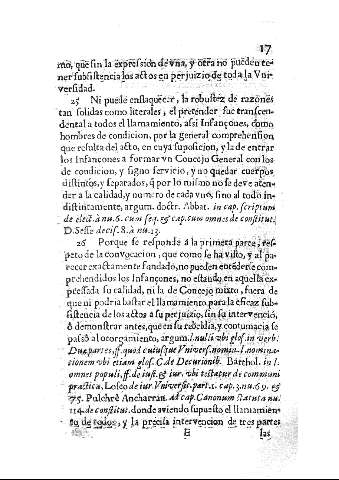 17
mo, que sin la expression de vna, y otra no pueden te-
ner subsistencia los actos en perjuizio de toda la Vni-
versidad.
25 Ni puede enflaquecer, la robustez de razones
tan solidas como literales, el pretender fue transcen-
dental a todos el llamamiento, assi Infançones, como
hombres de condicion, por la general comprehension
que resulta del acto, en cuya suposicion, y la de entrar
los Infançones a formar vn Concejo General con los
de condicion, y signo servicio, y no quedar cuerpos
distintos, y separados, q̃ por lo mismo no se deve aten-
der a la calidad, y numero de cada vno, sino al todo in-
distintamente, argum. doctr. Abbat. in cap. scriptum
de elect. à nu. 6. cum seq. & cap. cum omnes de constitut.
D. Sesse decis. 8. à nu. 23.
26 Porque se responde à la primera parte, res-
peto de la convocacion, que como se ha visto, y al pa-
recer exactamente fundado, no pueden entēderse com-
prehendidos los Infançones, no estando en aquella ex-
pressada su calidad, ni la de Concejo mixto, fuera de
que ni podria bastar el llamamiento para la eficaz sub-
sistencia de los actos a su perjuizio, sin su intervenciō,
ò demonstrar antes, que en su rebeldia, y contumacia se
passò al otorgamiento, argum. l. nulli vbi glos. in verb.
Duæ partes, ff. quod cuiusque Vnivers. nom. & l. nomina-
tionem vbi etiam glos. C. de Decurionib. Barthol. in l.
omnes populi, ff. de iust. & iur. vbi testatur de communi
practica, Loseo de iur. Vniversit. part. 1. cap. 3. nu. 69. &
75. Pulchrè Ancharran. ad cap. Canonum statuta nu.
114. de constitut. donde aviendo supuesto el llamamien-
to de todos, y la precisa intervencion de tres partes
E las